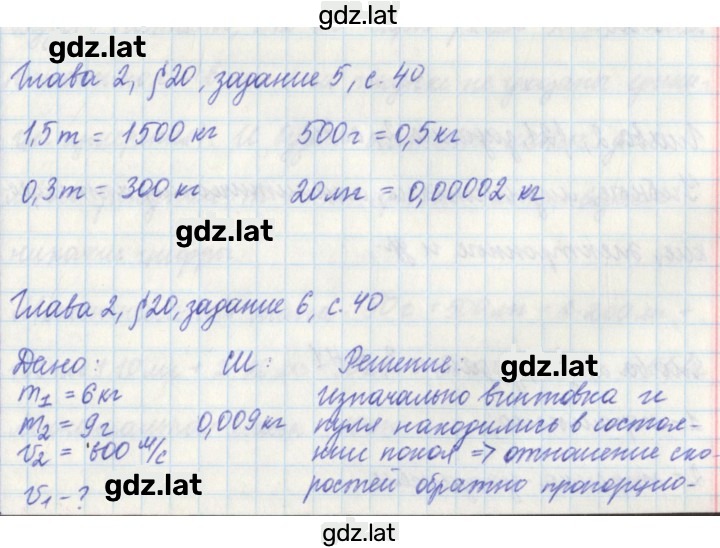 gdz.lat
gdz.lat
Глава 2, §20, задание 5, с. 40
1,5т = 1500 кг 500г = 0,5кг
0,3т = 300 кг 20мг = 0,00002 кг
gdz.lat
Глава 2, §20, задание 6, с. 40
Дано: СИ: Решение:
gdz.lat
m₁ = 6 кг Изначально винтовка и
m₂ = 9г 0,009кг пуля находились в состоя-
v₂ = 600 м/с нии покоя => отношение ско-
gdz.lat
v₁ - ? ростей обратно пропорцио-
gdz.lat